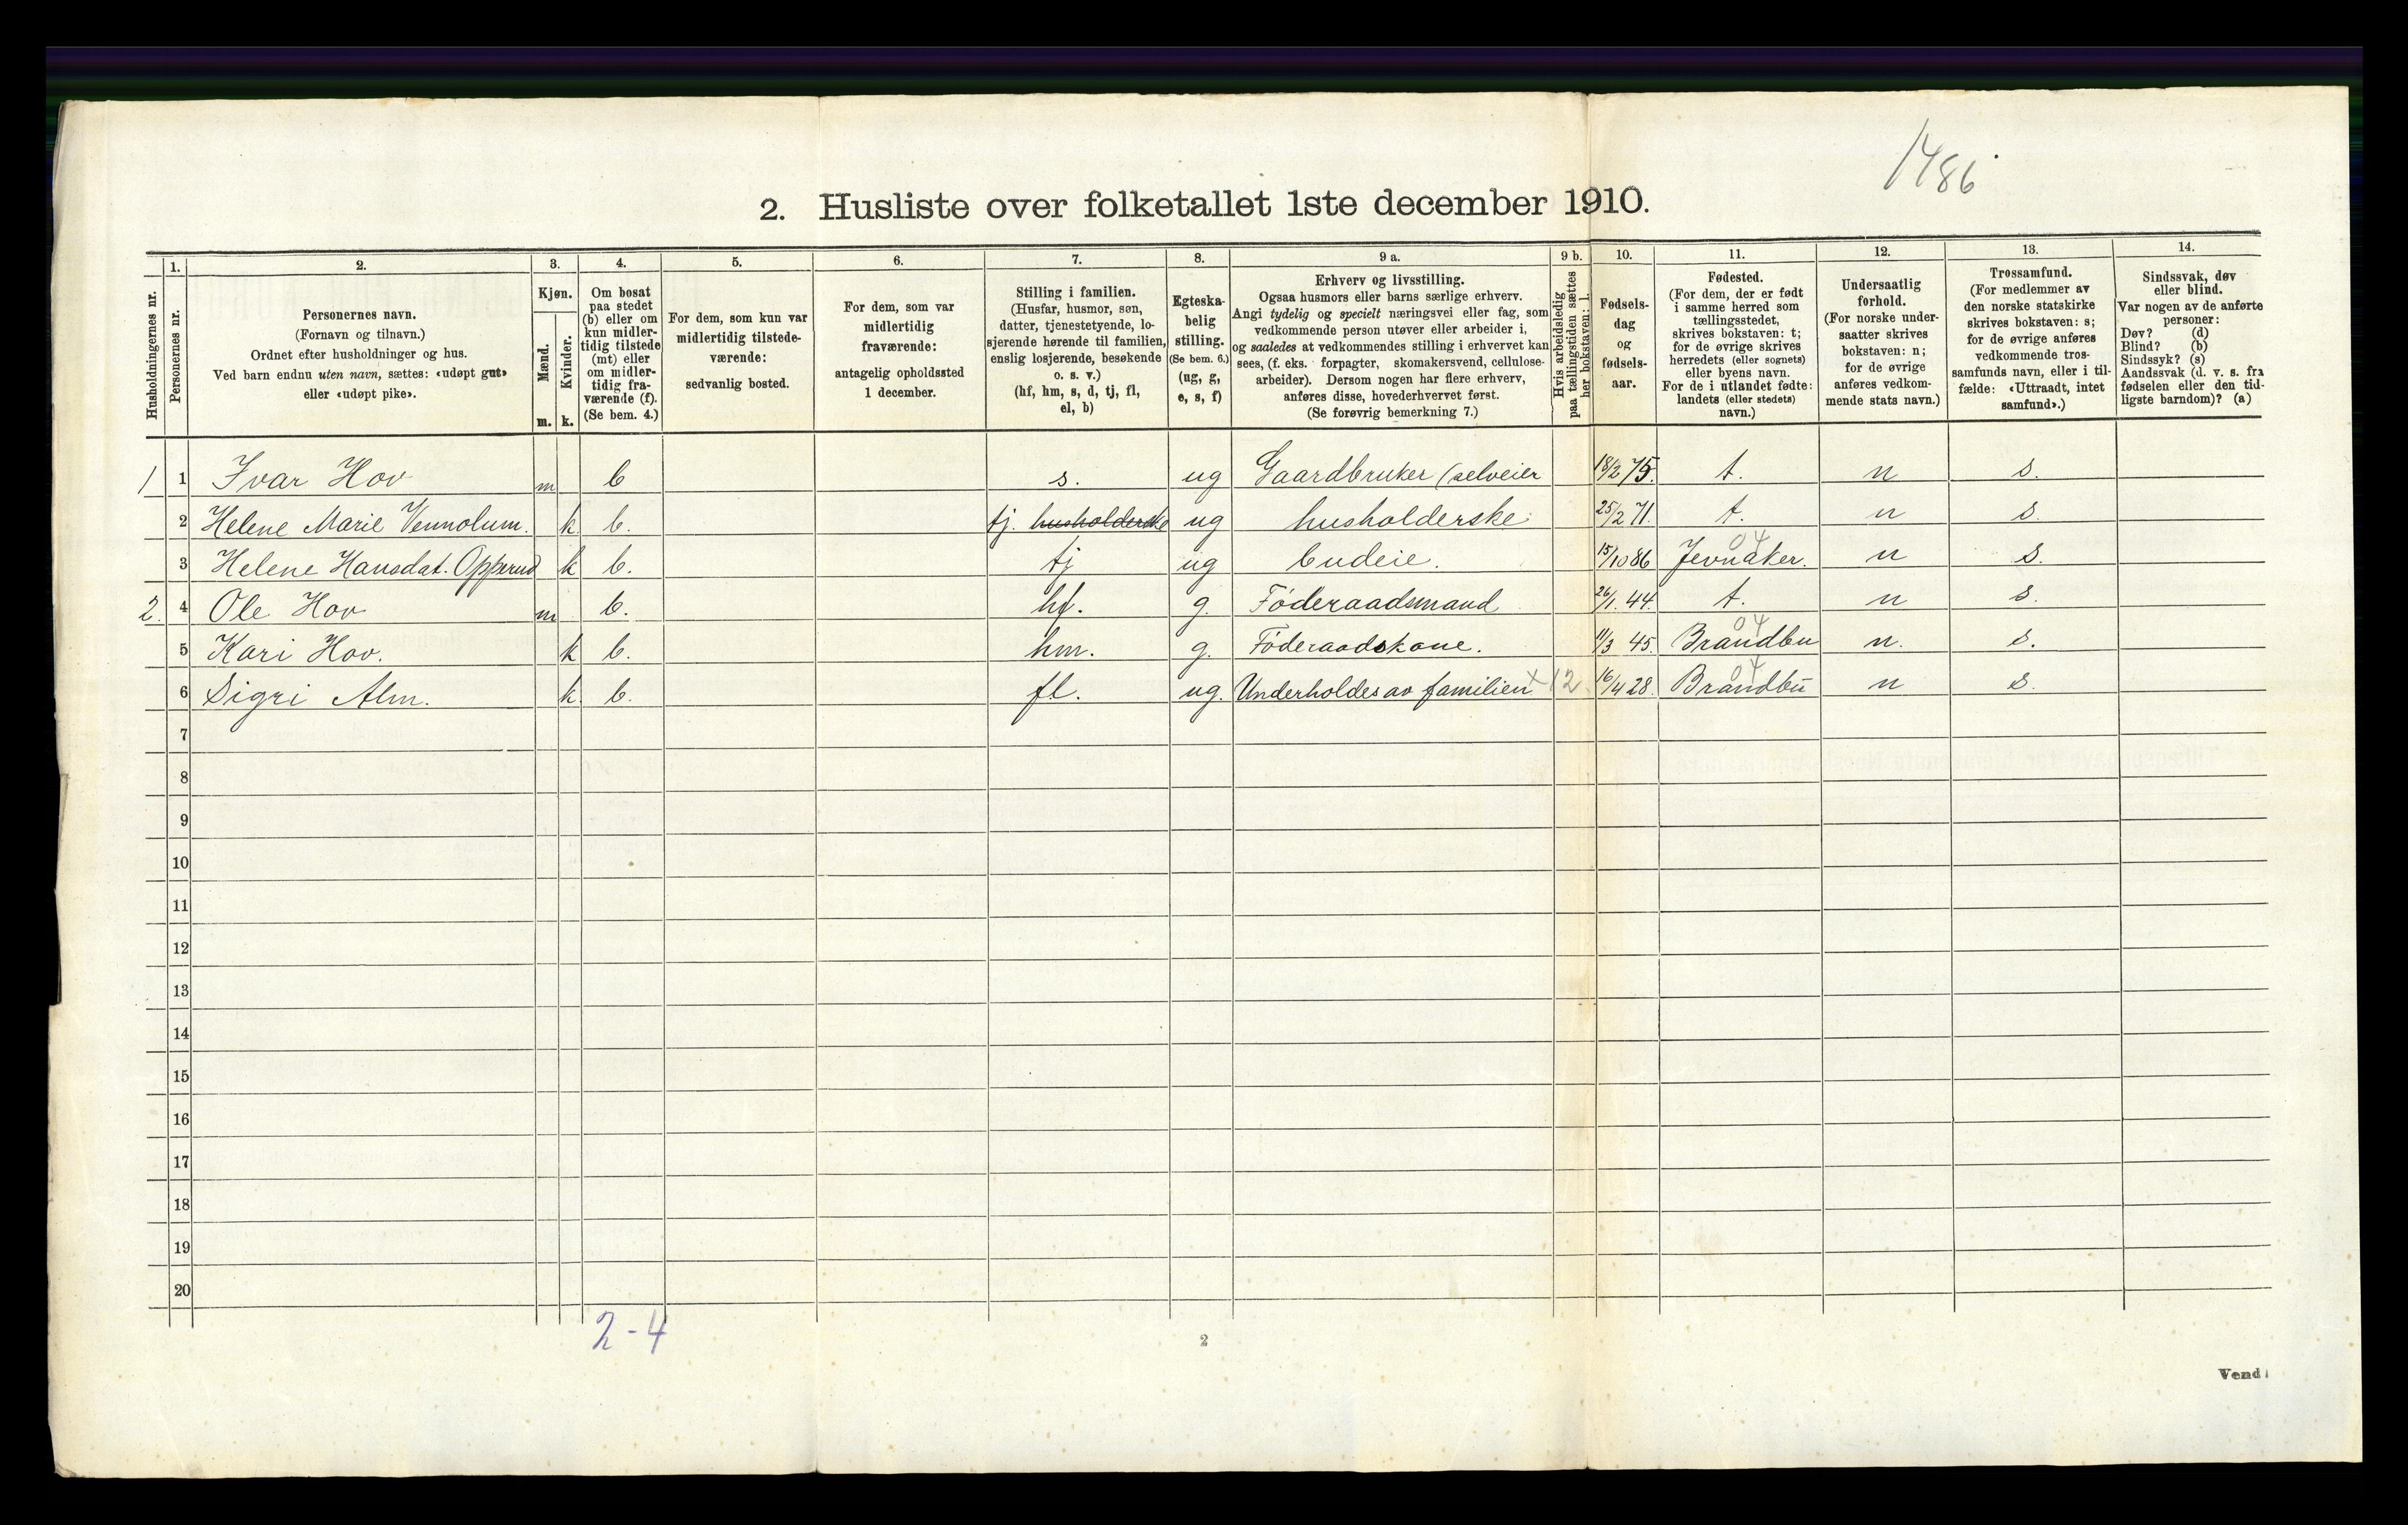 1486
2. Husliste over folketallet 1ste december 1910.
Husholdningernes nr.
1. Personernes nr.
2. Personernes navn.
(Fornavn og tilnavn.)
Ordnet efter husholdninger og hus.
Ved barn endnu uten navn, sættes: «udøpt gut»
eller «udøpt pike».
3. Kjøn.
Mænd. Kvinder.
m. k.
4. Om bosat
paa stedet
(b) eller om
kun midler-
tidig tilstede
(mt) eller
om midler-
tidig fra-
værende (f).
(Se bem. 4.)
5. For dem, som kun var
midlertidig tilstede-
værende:
sedvanlig bosted.
6. For dem, som var
midlertidig
fraværende:
antagelig opholdssted
1 december.
7. Stilling i familien.
(Husfar, husmor, søn,
datter, tjenestetyende, lo-
sjerende hørende til familien,
enslig losjerende, besøkende
o. s. v.)
(hf, hm, s, d, tj, fl,
el, b)
8. Egteska-
belig
stilling.
(Se bem. 6.)
(ug, g,
e, s, f)
9 a. Erhverv og livsstilling.
Ogsaa husmors eller barns særlige erhverv.
Angi tydelig og specielt næringsvei eller fag, som
vedkommende person utøver eller arbeider i,
og saaledes at vedkommendes stilling i erhvervet kan
sees, (f. eks. forpagter, skomakersvend, cellulose-
arbeider). Dersom nogen har flere erhverv,
anføres disse, hovederhvervet først.
(Se forøvrig bemerkning 7.)
9 b. Hvis arbeidsledig
paa tællingstiden sættes
her bokstaven: l.
10. Fødsels-
dag
og
fødsels-
aar.
11. Fødested.
(For dem, der er født
i samme herred som
tællingsstedet,
skrives bokstaven: t;
for de øvrige skrives
herredets (eller sognets)
eller byens navn.
For de i utlandet fødte:
landets (eller stedets)
navn.)
12. Undersaatlig
forhold.
(For norske under-
saatter skrives
bokstaven: n;
for de øvrige
anføres vedkom-
mende stats navn.)
13. Trossamfund.
(For medlemmer av
den norske statskirke
skrives bokstaven: s;
for de øvrige anføres
vedkommende tros-
samfunds navn, eller i til-
fælde: «Uttraadt, intet
samfund».)
14. Sindssvak, døv
eller blind.
Var nogen av de anførte
personer:
Døv? (d)
Blind? (b)
Sindssyk? (s)
Aandssvak (d. v. s. fra
fødselen eller den tid-
ligste barndom)? (a)
1 1 Ivar Hov m b s. ug Gaardbruker (selveier 18/2 75. t. n s.
2 Helene Marie Vennolum. k b. tj. husholderske ug husholderske 25/2 71. t. n s.
04
3 Helene Hansdat. Opperud k b. tj ug budeie. 15/10 86 Jevnaker. n s.
2. 4 Ole Hov m b. hf. g. Föderaadsmand 26/1. 44. t. n s.
04
5 Kari Hov. k b. hm. g. Föderaadskone. 11/3 45. Brandbu n. s.
04
6 Sigri Alm. k. b. fl. ug. Underholdes av familien x 12 16/4 28. Brandbu n s.
7
8
9
10
11
12
13
14
15
16
17
18
19
20
2-4
2
Vend